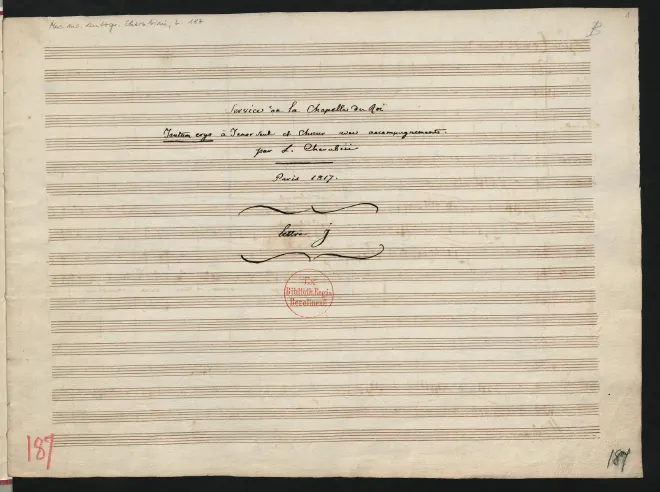 Mus. ms. autogr. Cherubini, L. 187
1
Service de la Chapelle du Roi
Tantum ergo à Tenor seul et Chœur avec accompagnements.
par L. Cherubini
Paris 1817.
lettre j
Ex
Biblioth. Regia
Berolinensi
187
187